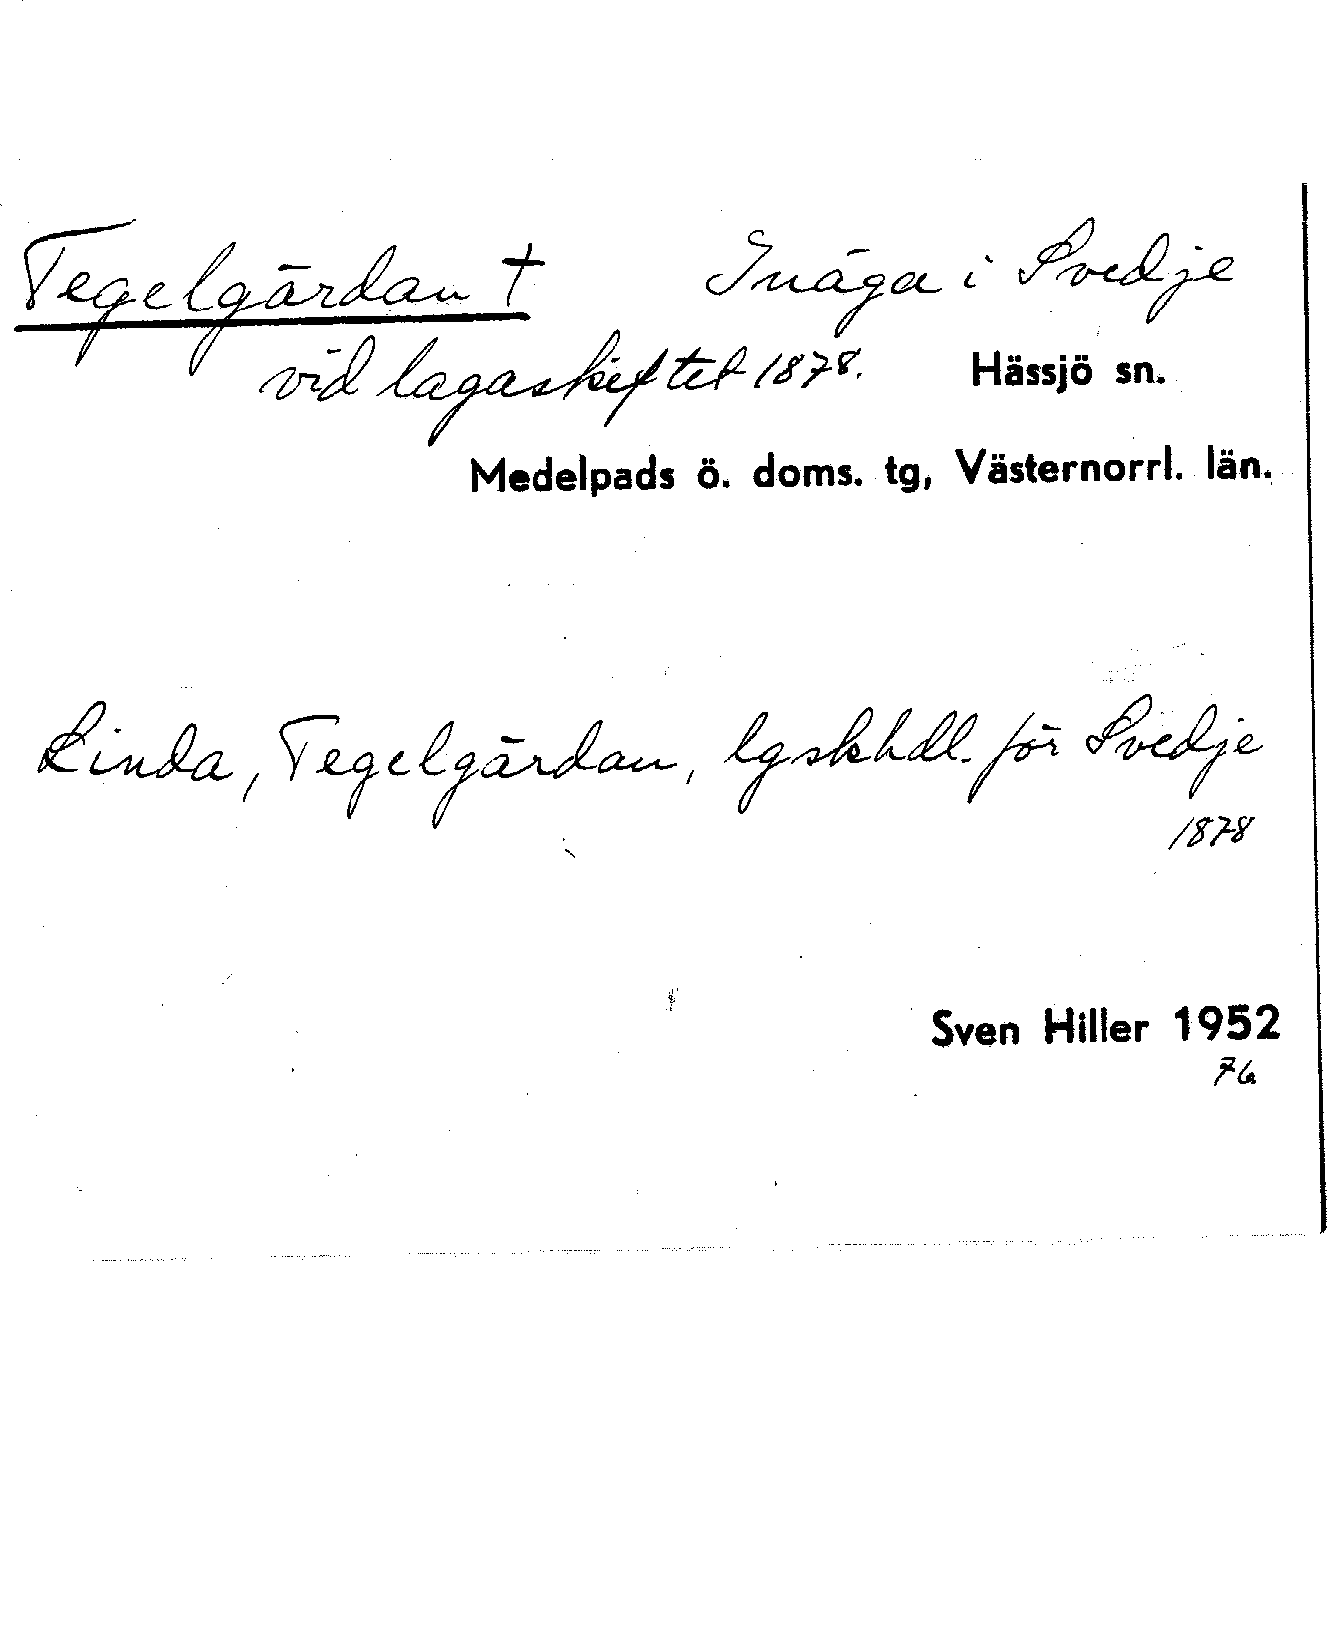 Tegelgärdan † Inäga i Svedje
vid lagaskiftet 1878. Hässjö sn.
Medelpads ö. doms. tg, Västernorrl. län.
Linda, Tegelgärdan, lgskhdl. för Svedje
1878
Sven Hiller 1952